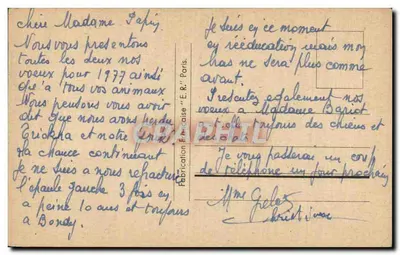 chère Madame Papin
Nous vous presentons
toutes les deux nos
voeux pour 1977 ainsi
qu'à tous vos animaux
Nous pensons vous avoir
dit que nous avons perdu
et notre
La chance continuant
je me suis a nouveau fracturé
l'épaule gauche 3 fois en
a peine 10 ans et toujours
a Bondy.
Fabrication Française "E.R." Paris.
Je suis en ce moment
en rééducation mais mon
bras ne sera plus comme
avant.
Presentez egalement nos
voeux a Madame Bariot
toujours des chiens et
Je vous passerai un coup
de téléphone un jour prochain
Mme
Christiane
CPARTI